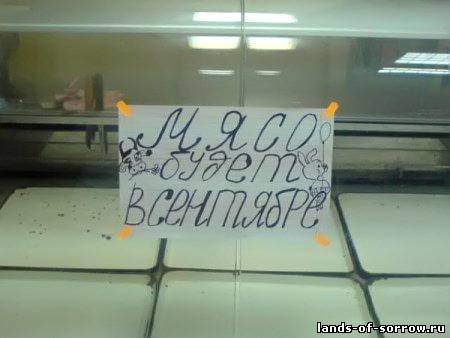 МЯСО
будет
В СЕНТЯБРЕ
lands-of-sorrow.ru